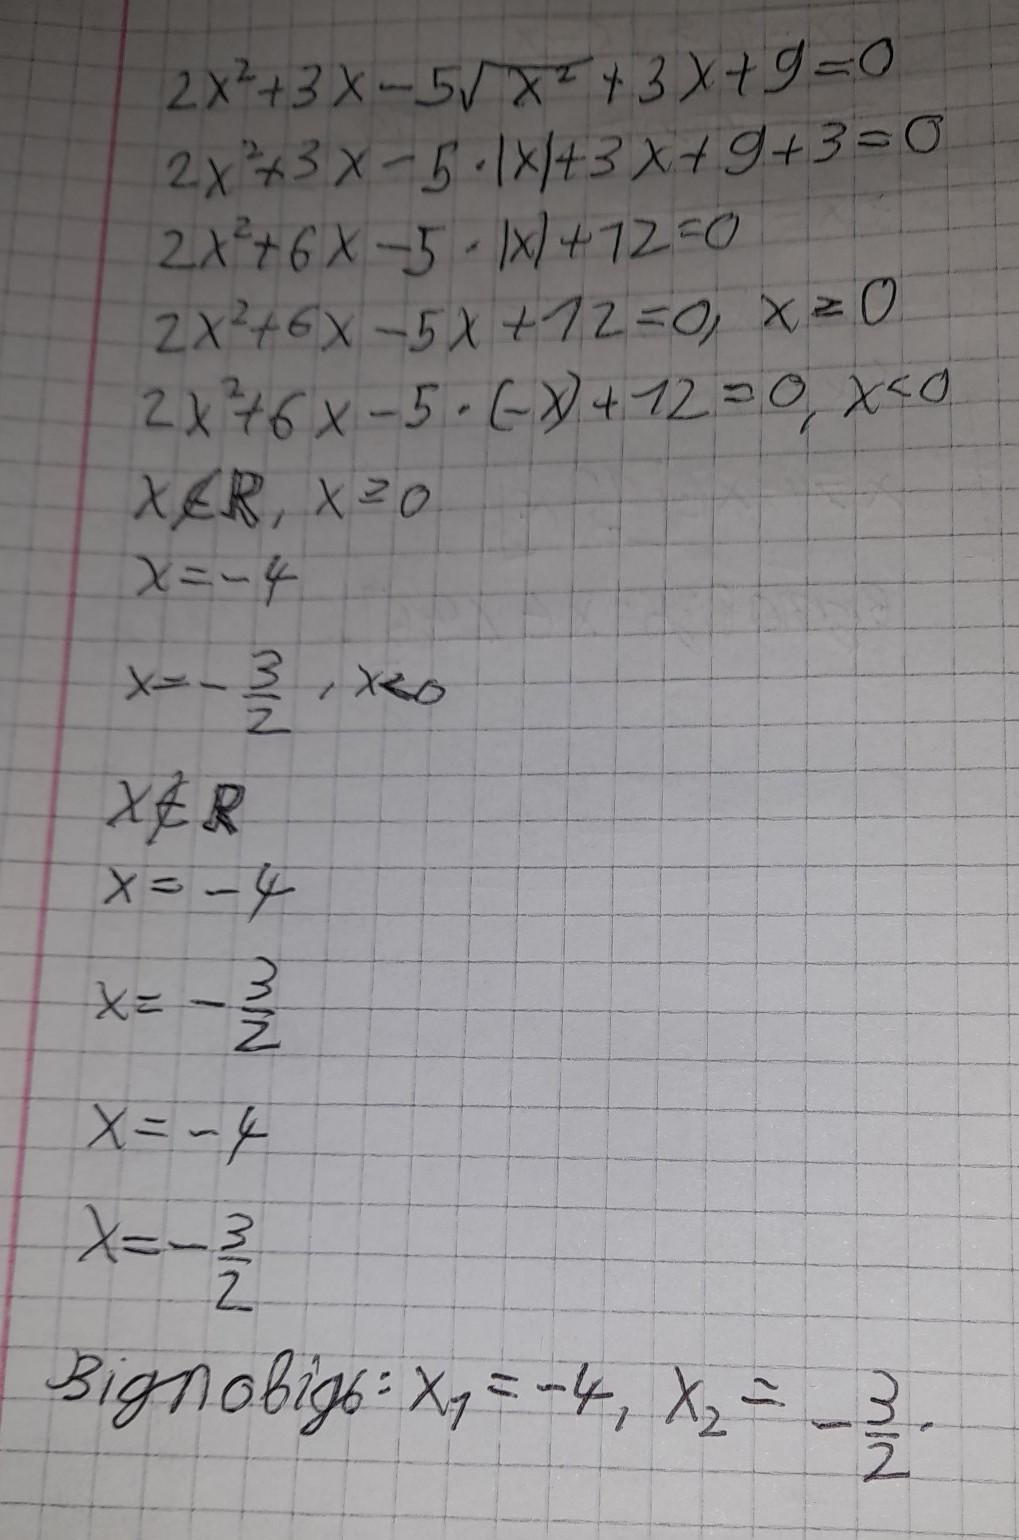 2x²+3x-5√x²+3x+9=0
2x²+3x-5·|x|+3x+9+3=0
2x²+6x-5·|x|+12=0
2x²+6x-5x+12=0, x≥0
2x²+6x-5·(-x)+12=0, x<0
x∉R, x≥0
x=-4
x=-3/2, x<0
x∉R
x=-4
x=-3/2
x=-4
x=-3/2
Відповідь: x₁=-4, x₂=-3/2.